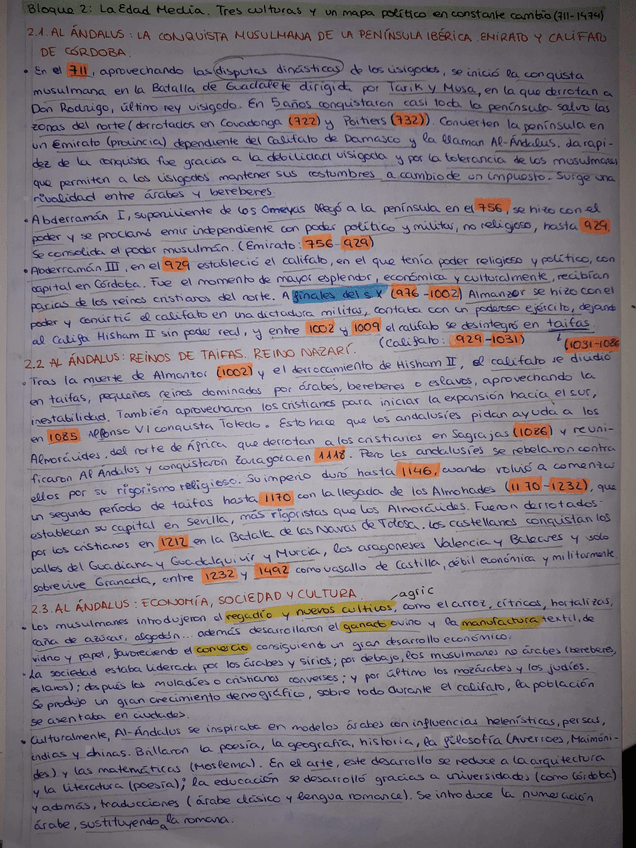 Bloque 2: La Edad Media. Tres culturas y un mapa político en constante cambio (711-1474)
2.1. AL ÁNDALUS: LA CONQUISTA MUSULMANA DE LA PENÍNSULA IBÉRICA. EMIRATO Y CALIFATO
DE CÓRDOBA.
• En el 711, aprovechando las disputas dinásticas de los visigodos, se inició la conquista
musulmana en la Batalla de Guadalete dirigida por Tarik y Musa, en la que derrotan a
Don Rodrigo, último rey visigodo. En 5 años conquistaron casi toda la península salvo las
zonas del norte (derrotados en Covadonga (722) y Poitiers (732)). Convierten la península en
un Emirato (provincia) dependiente del Califato de Damasco y la llaman Al-Ándalus, da rapi-
dez de la conquista fue gracias a la debilidad visigoda y por la tolerancia de los musulmanes
que permiten a los visigodos mantener sus costumbres a cambio de un impuesto. Surge una
rivalidad entre árabes y bereberes.
• Abderramán I, superviviente de los Omeyas llegó a la península en el 756, se hizo con el
poder y se proclamó emir independiente con poder político y militar, no religioso, hasta 929.
Se consolida el poder musulmán. (Emirato: 756-929)
• Abderramán III, en el 929 estableció el califato, en el que tenía poder religioso y político, con
capital en Córdoba. Fue el momento de mayor esplendor, económica y culturalmente, recibían
parias de los reinos cristianos del norte. A finales del s X (976-1002) Almanzor se hizo con el
poder y convirtió el califato en una dictadura militar, contaba con un poderoso ejército, dejando
al Califa Hisham II sin poder real, y entre 1002 y 1009 el califato se desintegró en taifas
(Califato: 929-1031) (1031-1086
2.2 AL ÁNDALUS: REINOS DE TAIFAS. REINO NAZARÍ.
• Tras la muerte de Almanzor (1002) y el derrocamiento de Hisham II, el califato se dividió
en taifas, pequeños reinos dominados por árabes, bereberes o eslavos, aprovechando la
inestabilidad. También aprovecharon los cristianos para iniciar la expansión hacia el sur,
en 1085 Alfonso VI conquista Toledo. Esto hace que los andalusíes pidan ayuda a los
Almorávides, del norte de África que derrotan a los cristianos en Sagrajas (1086) y reuni-
ficaron Al Ándalus y conquistaron Zaragoza en 1118. Pero los andalusíes se rebelaron contra
ellos por su rigorismo religioso. Su imperio duró hasta 1146, cuando volvió a comenzar
un segundo período de taifas hasta 1170 con la llegada de los Almohades (1170-1232), que
establecen su capital en Sevilla, más rigoristas que los Almorávides. Fueron derrotados
por los cristianos en 1212 en la Batalla de las Navas de Tolosa. Los castellanos conquistan los
valles del Guadiana y Guadalquivir y Murcia, los aragoneses Valencia y Baleares y solo
sobrevive Granada, entre 1232 y 1492 como vasallo de Castilla, débil económica y militarmente
2.3. AL ÁNDALUS: ECONOMÍA, SOCIEDAD Y CULTURA
agric
• Los musulmanes introdujeron el regadío y nuevos cultivos, como el arroz, cítricos, hortalizas,
caña de azúcar, algodón... además desarrollaron el ganado ovino y la manufactura textil, de
vidrio y papel, favoreciendo el comercio consiguiendo un gran desarrollo económico.
• La sociedad estaba liderada por los árabes y sirios; por debajo, los musulmanes no árabes (bereberes,
eslavos); después los muladíes o cristianos conversos; y por último los mozárabes y los judíos.
Se produjo un gran crecimiento demográfico, sobre todo durante el califato, la población
se asentaba en ciudades.
• Culturalmente, Al-Ándalus se inspiraba en modelos árabes con influencias helenísticas, persas,
indias y chinas. Brillaron la poesía, la geografía, historia, la filosofía (Averroes, Maimóni-
des) y las matemáticas (Moslema). En el arte, este desarrollo se reduce a la arquitectura
y la literatura (poesía); la educación se desarrolló gracias a universidades (como Córdoba)
y además, traducciones (árabe clásico y lengua romance). Se introduce la numeración
árabe, sustituyendo a la romana.